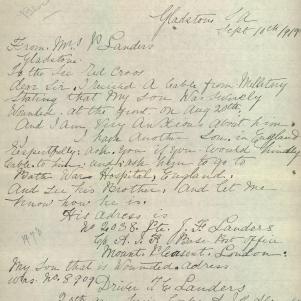 Gladstone S.A
Sept 10th / 1918
From Mrs P Landers
Gladstone
To the Sec Red Cross
Dear Sir, I recived A Cable from Millitery
Stating that My Son Was Severely
Wounded. at the front. on Aug 20th,
And I am Very Anxious about him.
I have Another Son, in England
Respectfully Ask. You if you Would Kindley
Cable to him and Ask him to go to
Bath War Hospital, England.
And See his Brother, And let me
Know how he is.
His adress is
No 2038. Pte. J. F Landers
A. I. F. Base Post Office
Mount Pleasent, London.
My Son that is Wounded. Adress
was No. 8909
Driver A E Landers